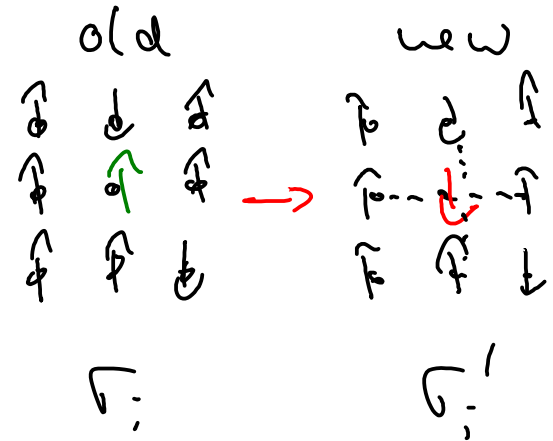 old new
σᵢ σᵢ'